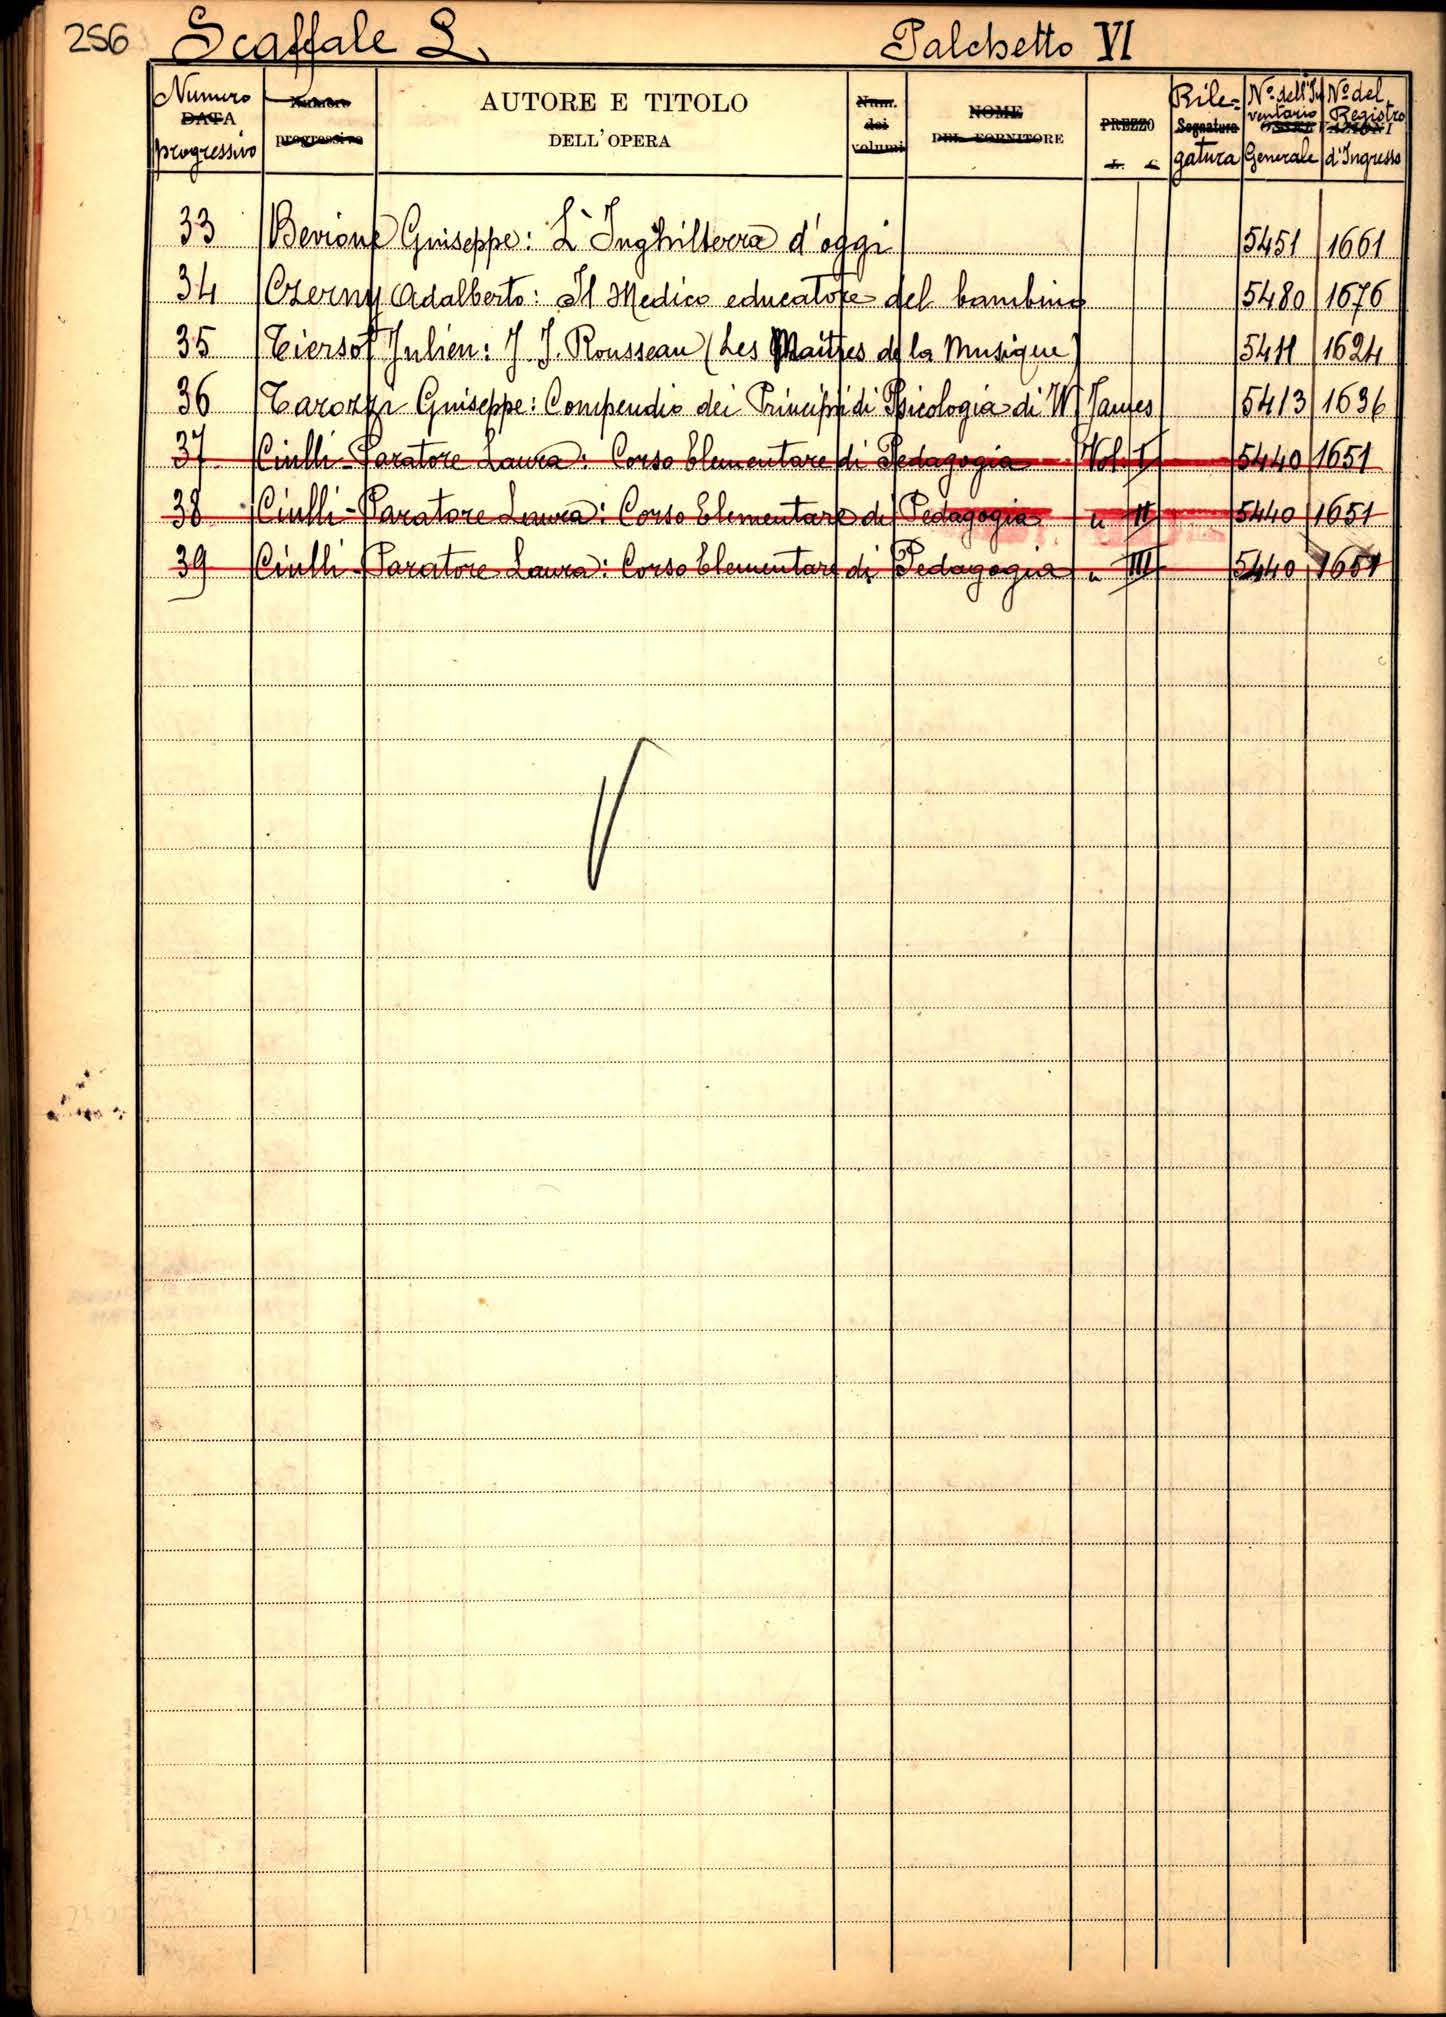 256 Scaffale L. Palchetto VI
Numero DATA progressivo Numero progressivo AUTORE E TITOLO DELL'OPERA Num. dei volumi NOME DEL FORNITORE PREZZO L. C. Rile= Segnatura gatura Nº dell'In ventario Generale Nº del Registro d'Ingresso
33 Bevione Giuseppe: L'Inghilterra d'oggi 5451 1661
34 Czerny Adalberto: Il Medico educatore del bambino 5480 1676
35 Tiersot Julien: J. J. Rousseau (Les Maîtres de la Musique) 5411 1624
36 Tarozzi Giuseppe: Compendio dei Principi di Psicologia di W James 5413 1636
37 Ciulli-Paratore Laura: Corso Elementare di Pedagogia Vol. I 5440 1651
38 Ciulli-Paratore Laura: Corso Elementare di Pedagogia " II 5440 1651
39 Ciulli-Paratore Laura: Corso Elementare di Pedagogia " III 5440 1651